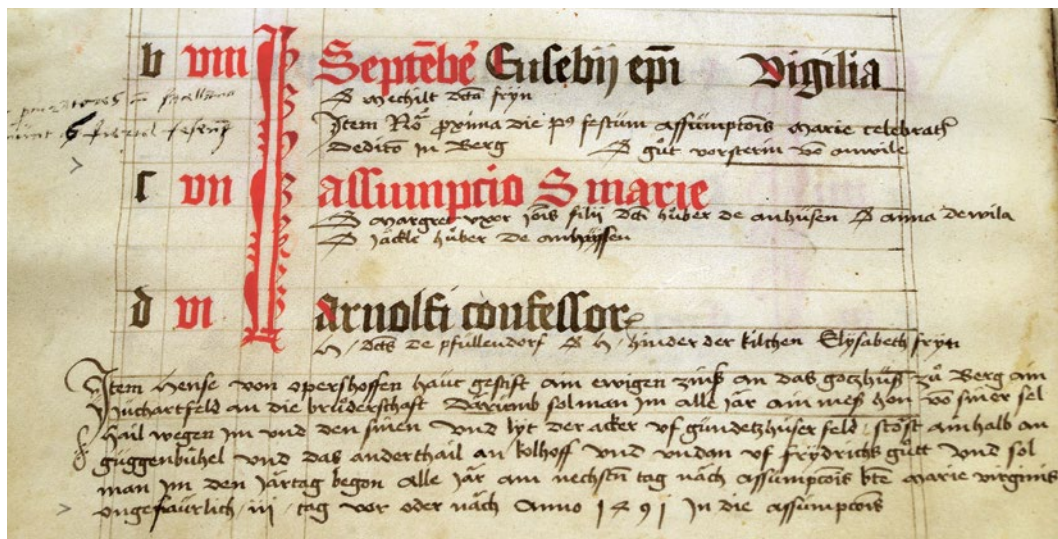 b viii Septēbē Eusebij epī Vigilia
Mechilt dcta fryn
Item proxima die festum assumptois marie celebrat
Dedito in Berg gůt vorsterin vō
c vii assumptio S marie
margret vxor filij dcti hůber de anhusen anna de wila
Jäckle hůber de
d vi arnolfi confessor
H dcts de pfullendorf H hinder der kilchen Elysabeth fryn
Item Hense von opershoffen haut gestift ain ewigen zinß an das gotzhuß zů Berg ain
Juchartfeld an die brůderschafft Darumb sol man im alle jar ain meß hon vō siner sel
hail wegen im vnd den sinen vnd lyt der acker vf gündetzhuser feld stost ainhalb an
guggenbühel vnd das anderthail an kolhoff vnd vndan vf frydrichs gůtt vnd sol
man im den jartag begon alle jar am nechsten tag näch assumptois bte marie virginis
ungefaurlich iii tag vor oder näch Anno 1491 In die assumptois